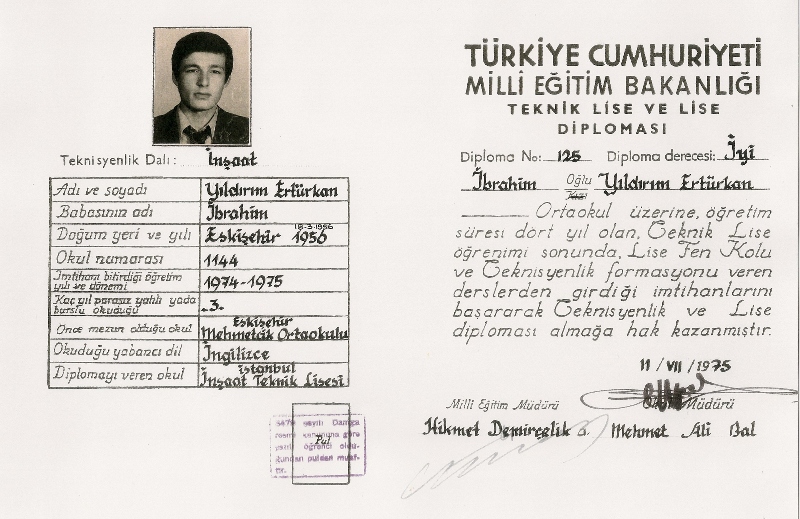 Teknisyenlik Dalı: İnşaat
Adı ve soyadı Yıldırım Ertürkan
Babasının adı İbrahim
Doğum yeri ve yılı Eskişehir 18-3-1956 1956
Okul numarası 1144
İmtihanı bitirdiği öğretim yılı ve dönemi 1974-1975
Kaç yıl parasız yatılı yada burslu okuduğu .3.
Önce mezun olduğu okul Eskişehir Mehmetâk Ortaokulu
Okuduğu yabancı dil İngilizce
Diplomayı veren okul İstanbul İnşaat Teknik Lisesi
sayılı Damga
resmi kanununa göre
yatılı öğrenci oldu-
ğundan puldan muaf-
tır.
Pul
TÜRKİYE CUMHURİYETİ
MİLLİ EĞİTİM BAKANLIĞI
TEKNİK LİSE VE LİSE
DİPLOMASI
Diploma No: 125 Diploma derecesi: İyi
İbrahim Oğlu Kızı Yıldırım Ertürkan
Ortaokul üzerine, öğretim
süresi dört yıl olan, Teknik Lise
öğrenimi sonunda, Lise Fen Kolu
ve Teknisyenlik formasyonu veren
derslerden girdiği imtihanlarını
başararak Teknisyenlik ve Lise
diploması almağa hak kazanmıştır.
11 / VII / 1975
Milli Eğitim Müdürü Müdürü
Hikmet Demirçelik Mehmet Ali Bal